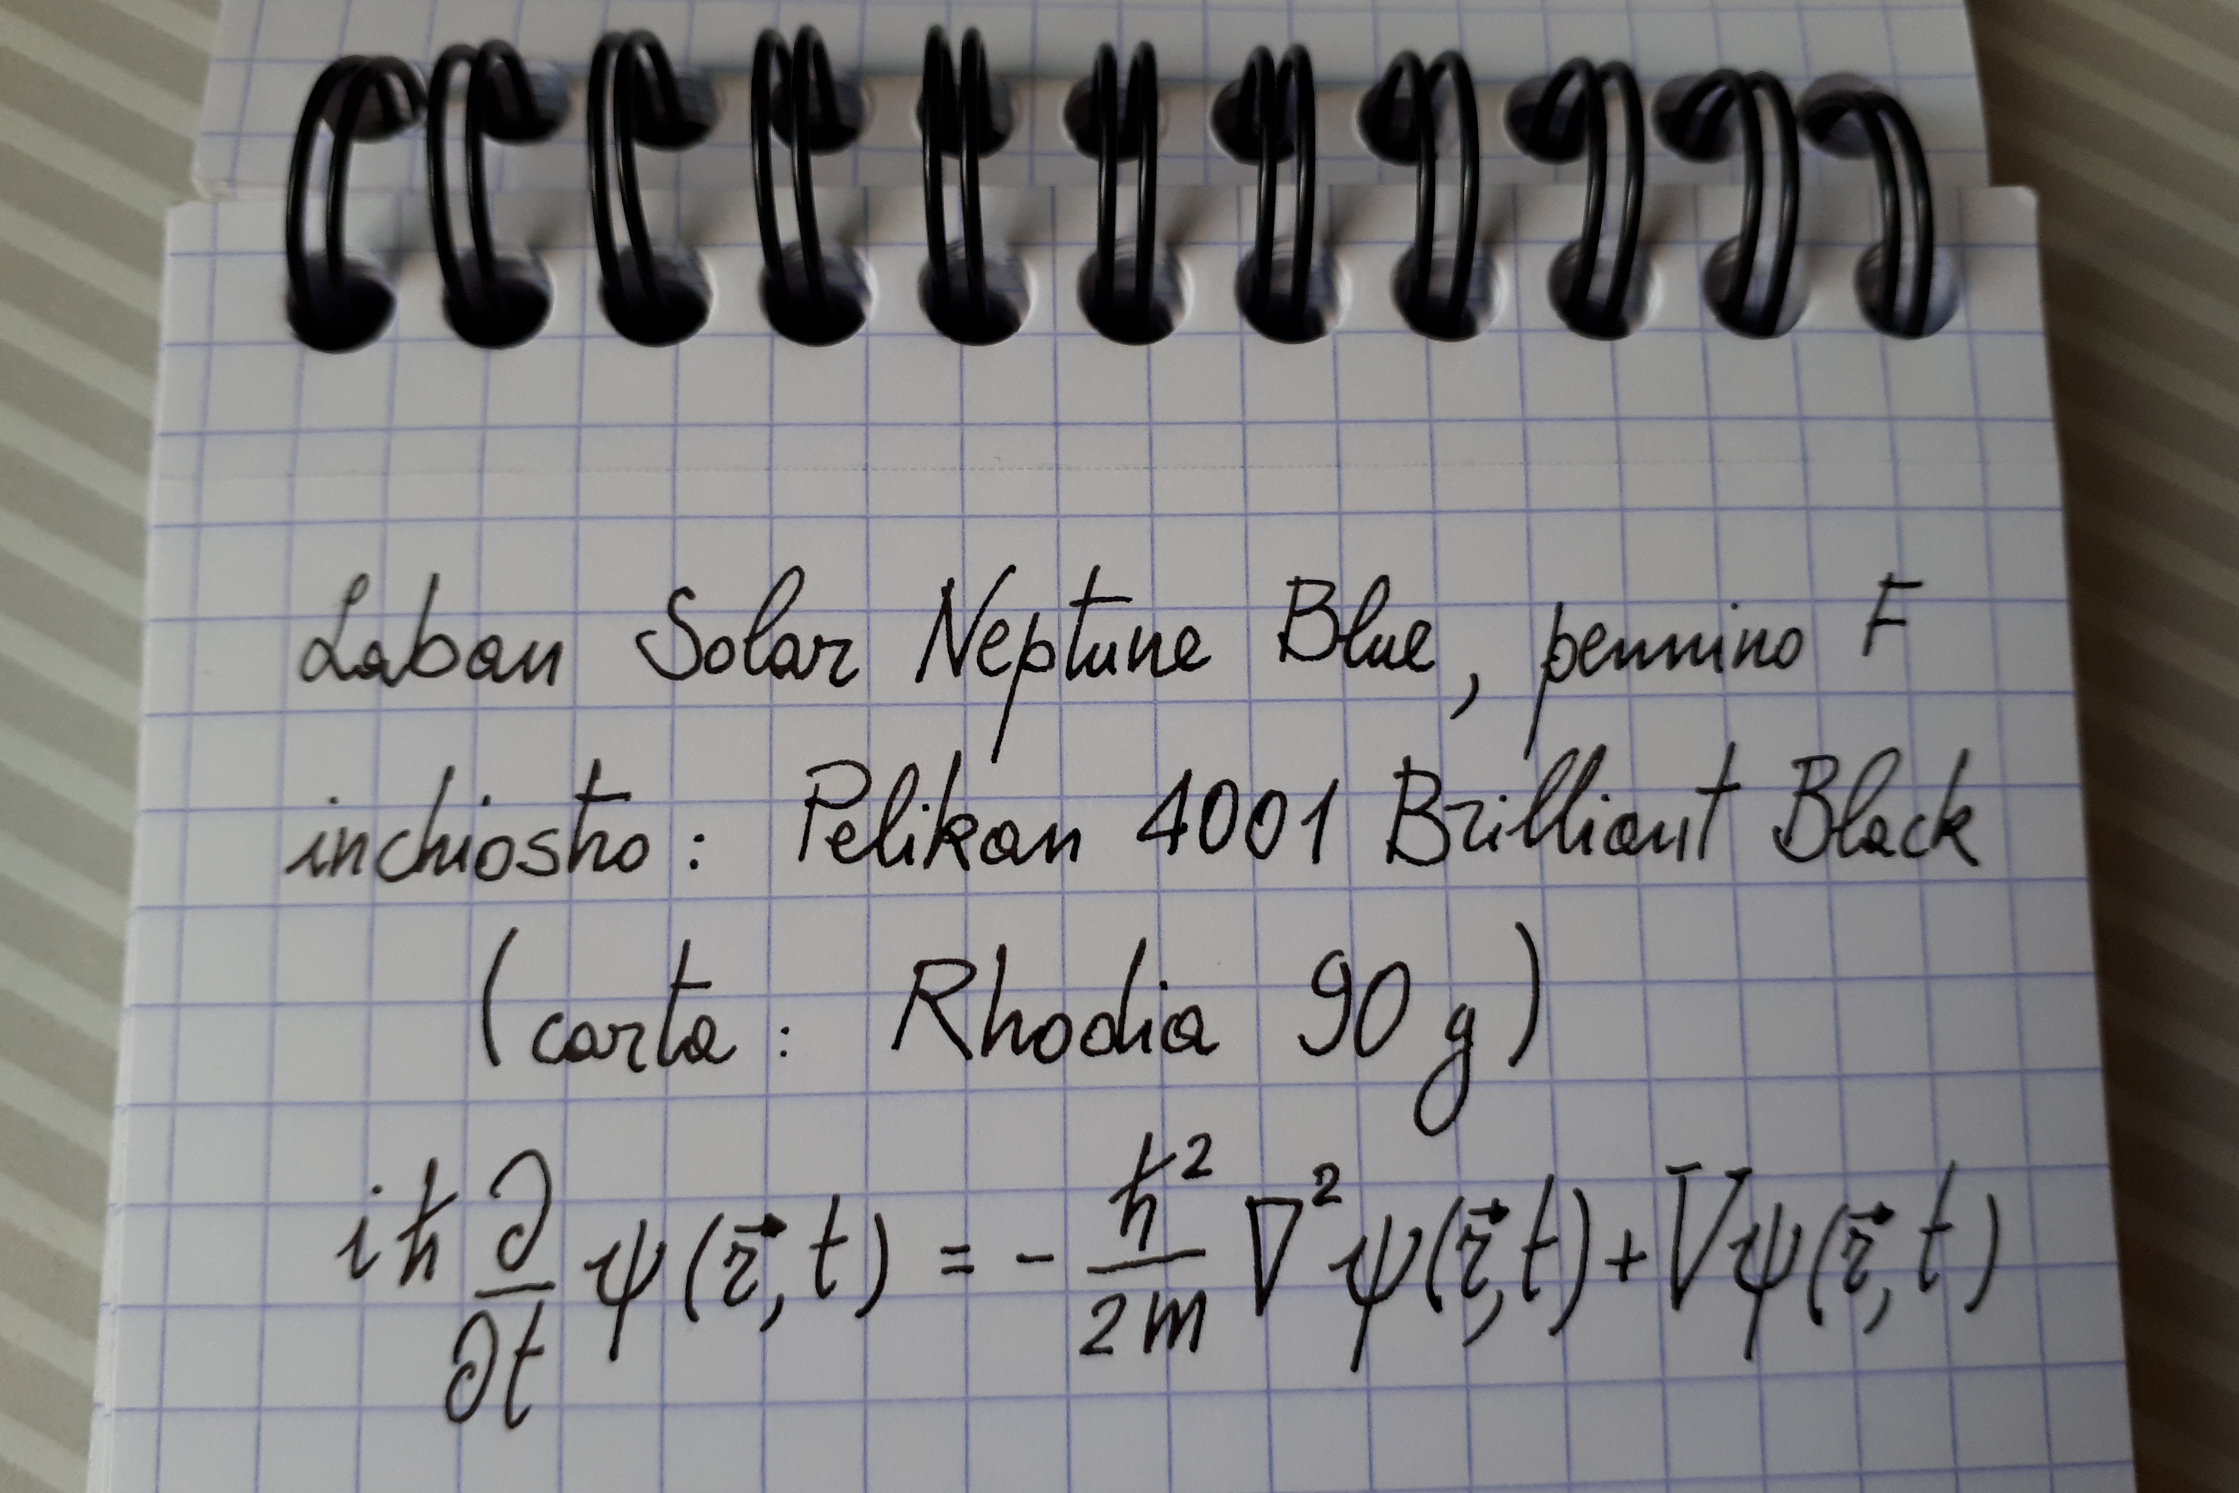 Laban Solar Neptune Blue, pennino F
inchiostro: Pelikan 4001 Brilliant Black
(carta: Rhodia 90 g)
iħ ∂/∂t ψ(r⃗,t) = - ħ²/2m ∇²ψ(r⃗,t) + Vψ(r⃗,t)